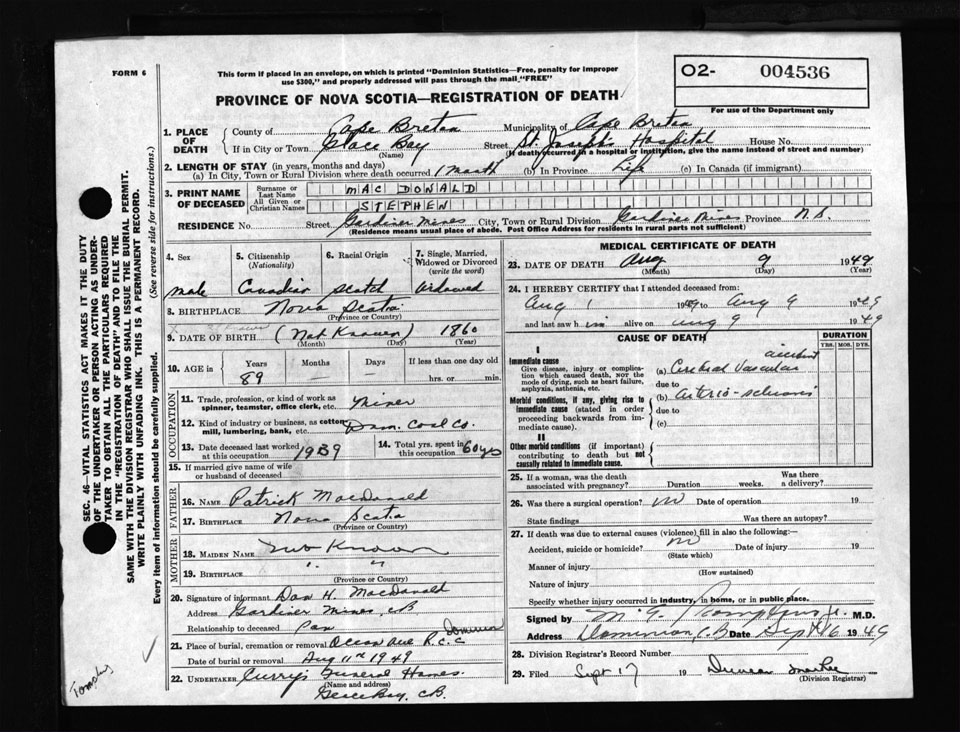 FORM 6
This form if placed in an envelope, on which is printed "Dominion Statistics—Free, penalty for improper
use $300," and properly addressed will pass through the mail "FREE"
O2- 004536
For use of the Department only
PROVINCE OF NOVA SCOTIA—REGISTRATION OF DEATH
1. PLACE OF DEATH
County of Cape Breton Municipality of Cape Breton
If in City or Town Glace Bay Street St. Josephs Hospital House No.
(Name) (If death occurred in a hospital or institution, give the name instead of street and number)
2. LENGTH OF STAY (in years, months and days)
(a) In City, Town or Rural Division where death occurred 1 month (b) In Province Life (c) In Canada (if immigrant)
3. PRINT NAME OF DECEASED
Surname or Last Name MAC DONALD
All Given or Christian Names STEPHEN
RESIDENCE No. Street Gardiner Mines City, Town or Rural Division Gardiner Mines Province N.S.
(Residence means usual place of abode. Post Office Address for residents in rural parts not sufficient)
4. Sex
male
5. Citizenship (Nationality)
Canadian
6. Racial Origin
Scotch
7. Single, Married, Widowed or Divorced (write the word)
Widowed
8. BIRTHPLACE Nova Scotia
(Province or Country)
9. DATE OF BIRTH (Not Known) 1860
(Month) (Day) (Year)
10. AGE in Years Months Days If less than one day old
89 — — hrs. or min.
OCCUPATION
11. Trade, profession, or kind of work as spinner, teamster, office clerk, etc. Miner
12. Kind of industry or business, as cotton mill, lumbering, bank, etc. Dom. Coal Co.
13. Date deceased last worked at this occupation 1939
14. Total yrs. spent in this occupation 60 yrs
15. If married give name of wife or husband of deceased
FATHER
16. NAME Patrick MacDonald
17. BIRTHPLACE Nova Scotia
(Province or Country)
MOTHER
18. MAIDEN NAME Not Known
19. BIRTHPLACE " "
(Province or Country)
20. Signature of informant Dan H. MacDonald
Address Gardiner Mines CB
Relationship to deceased
21. Place of burial, cremation or removal Ocean Ave R.C.C Dominion
Date of burial or removal Aug 11th 1949
22. UNDERTAKER Curry's Funeral Homes.
(Name and address)
Glace Bay, CB.
MEDICAL CERTIFICATE OF DEATH
23. DATE OF DEATH Aug 9 1949
(Month) (Day) (Year)
24. I HEREBY CERTIFY that I attended deceased from:
Aug 1 1949 to Aug 9 1949
and last saw him alive on Aug 9 1949
CAUSE OF DEATH
DURATION
YRS. MOS. DYS.
I
Immediate cause
Give disease, injury or complication which caused death, NOT the mode of dying, such as heart failure, asphyxia, asthenia, etc.
(a) Cerebral Vascular accident
due to
Morbid conditions, if any, giving rise to immediate cause (stated in order proceeding backwards from immediate cause).
(b) Arterio-sclerosis
due to
(c)
II
Other morbid conditions (if important) contributing to death but not causally related to immediate cause.
25. If a woman, was the death associated with pregnancy? Duration weeks. Was there a delivery?
26. Was there a surgical operation? no Date of operation 19
State findings Was there an autopsy?
27. If death was due to external causes (violence) fill in also the following:—
Accident, suicide or homicide? no Date of injury 19
(State which)
Manner of injury
(How sustained)
Nature of injury
Specify whether injury occurred in industry, in home, or in public place.
Signed by M.D.
Address Dominion C.B Date Sept 16 1949
28. Division Registrar's Record Number
29. Filed Sept 17 19 Duncan MacRae
(Division Registrar)
SEC. 46—VITAL STATISTICS ACT MAKES IT THE DUTY
OF THE UNDERTAKER OR PERSON ACTING AS UNDER-
TAKER TO OBTAIN ALL THE PARTICULARS REQUIRED
IN THE "REGISTRATION OF DEATH" AND TO FILE THE
SAME WITH THE DIVISION REGISTRAR WHO SHALL ISSUE THE BURIAL PERMIT.
WRITE PLAINLY WITH UNFADING INK. THIS IS A PERMANENT RECORD.
Every item of information should be carefully supplied. (See reverse side for instructions.)